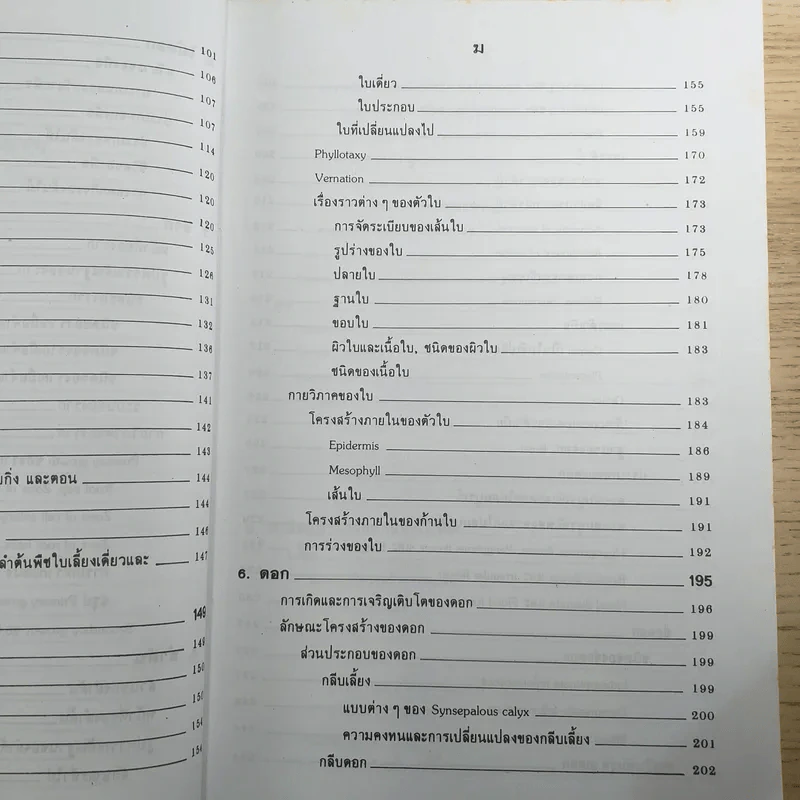 101
106
107
107
114
120
120
120
125
126
131
132
136
137
141
142
143
กิ่ง และตอน 144
144
146
ลำต้นพืชใบเลี้ยงเดี่ยวและ 147
149
149
150
150
154
154
ฆ
ใบเดี่ยว 155
ใบประกอบ 155
ใบที่เปลี่ยนแปลงไป 159
Phyllotaxy 170
Vernation 172
เรื่องราวต่าง ๆ ของตัวใบ 173
การจัดระเบียบของเส้นใบ 173
รูปร่างของใบ 175
ปลายใบ 178
ฐานใบ 180
ขอบใบ 181
ผิวใบและเนื้อใบ, ชนิดของผิวใบ 183
ชนิดของเนื้อใบ
กายวิภาคของใบ 183
โครงสร้างภายในของตัวใบ 184
Epidermis 186
Mesophyll 189
เส้นใบ 191
โครงสร้างภายในของก้านใบ 191
การร่วงของใบ 192
6. ดอก 195
การเกิดและการเจริญเติบโตของดอก 196
ลักษณะโครงสร้างของดอก 199
ส่วนประกอบของดอก 199
กลีบเลี้ยง 199
แบบต่าง ๆ ของ Synsepalous calyx 200
ความคงทนและการเปลี่ยนแปลงของกลีบเลี้ยง 201
กลีบดอก 202